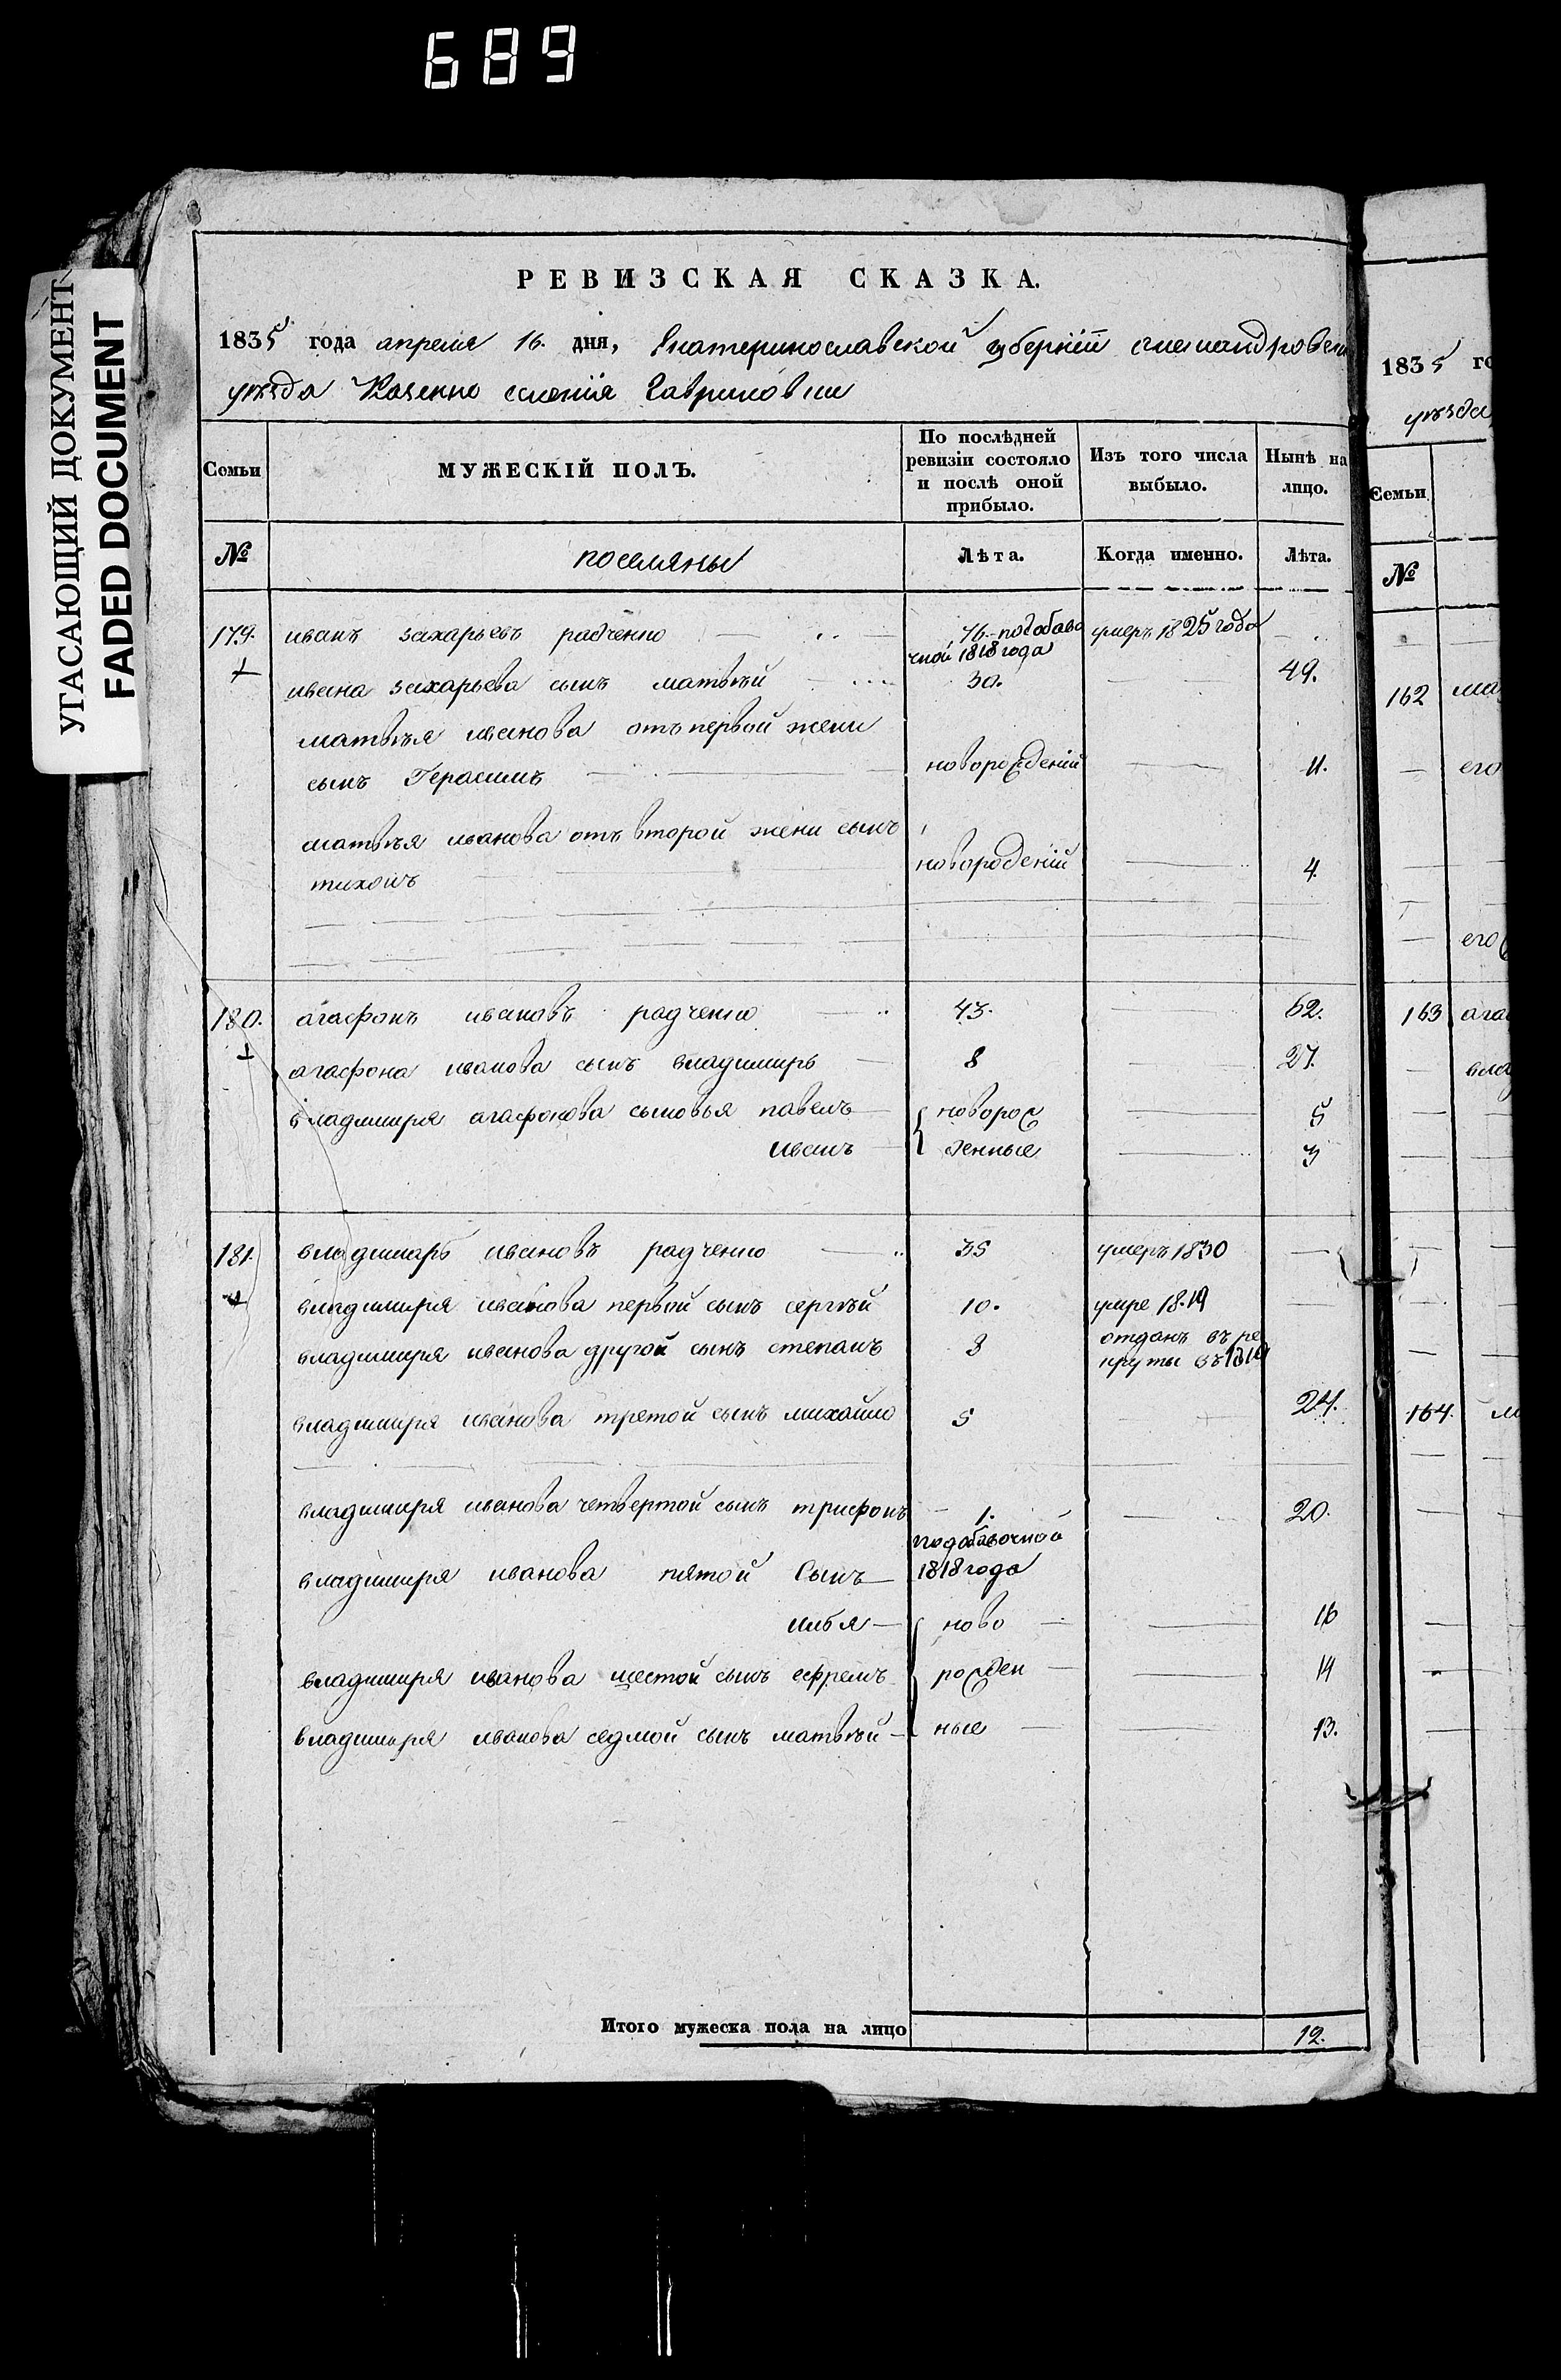 689
УГАСАЮЩИЙ ДОКУМЕНТ
FADED DOCUMENT
РЕВИЗСКАЯ СКАЗКА.
1835 года апреля 16. дня, Екатеринославской губерніи александровск
уѣзда Казенно селенія Гавриловки
Семьи
МУЖЕСКІЙ ПОЛЪ.
По послѣдней ревизіи состояло и послѣ оной прибыло.
Изъ того числа выбыло.
Нынѣ на лицо.
№ поселяны Лѣта. Когда именно. Лѣта.
179. иванъ захарьевъ радченко 76. по добаво умеръ 1825 года
чной 1818 года
ивана захарьева сынъ матвѣй 30. 49.
матвѣя иванова отъ первой жени
сынъ Герасимъ новорожденій 11.
матвѣя иванова отъ второй жени сынъ
тихонъ новороденій 4.
180. агафонъ ивановъ радченко 43. 62.
агафона иванова сынъ владимиръ 8 27.
владимиря агафонова сыновья павелъ новорож 5
иванъ денные 3
181. владимиръ ивановъ радченко 35 умеръ 1830
владимиря иванова первой сынъ сергѣй 10. умре 18.19
владимиря иванова другой сынъ степанъ 8 отданъ въ ре
круты въ 1819
владимиря иванова третой сынъ михайло 5 24.
владимиря иванова четвертой сынъ трифонъ 1. 20.
подобавочной
владимиря иванова пятой Сынъ 1818 года
илья ново 16
владимиря иванова шестой сынъ ефремъ рожден 14
владимиря иванова седмой сынъ матвѣй ные 13.
Итого мужеска пола на лицо 12.
1835 го
уѣзда
Семьи
№
162 ма
его
его
163 ага
вла
164.